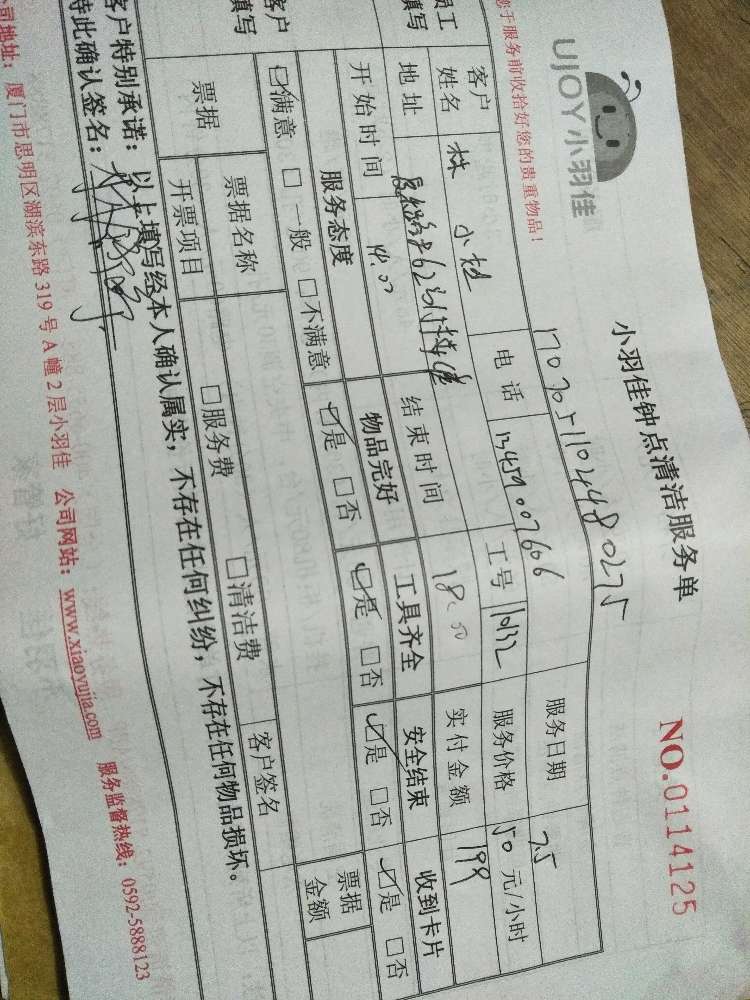 UJOY小羽佳
小羽佳钟点清洁服务单
NO.0114125
您于服务前收拾好您的贵重物品！
服务日期 7.5
员工填写
客户姓名 林小 电话 工号 10132 服务价格 50 元/小时
地址 实付金额 199
开始时间 14.00 结束时间 18.00
客户填写
服务态度 物品完好 工具齐全 安全结束 收到卡片
☑满意 □一般 □不满意 ☑是 □否 ☑是 □否 ☑是 □否 ☑是 □否
票据 票据名称 票据金额
开票项目 □服务费 □清洁费 客户签名
客户特别承诺：以上填写经本人确认属实，不存在任何纠纷，不存在任何物品损坏。
特此确认签名：
公司地址：厦门市思明区湖滨东路319号A幢2层小羽佳 公司网站：www.xiaoyujia.com 服务监督热线：0592-5888123